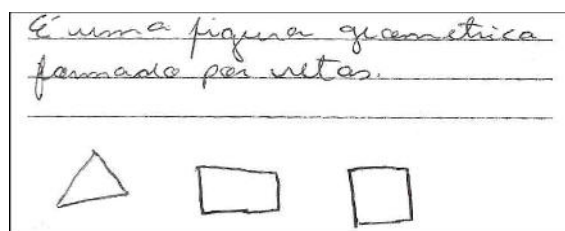 É uma figura geometrica
formado por retas.